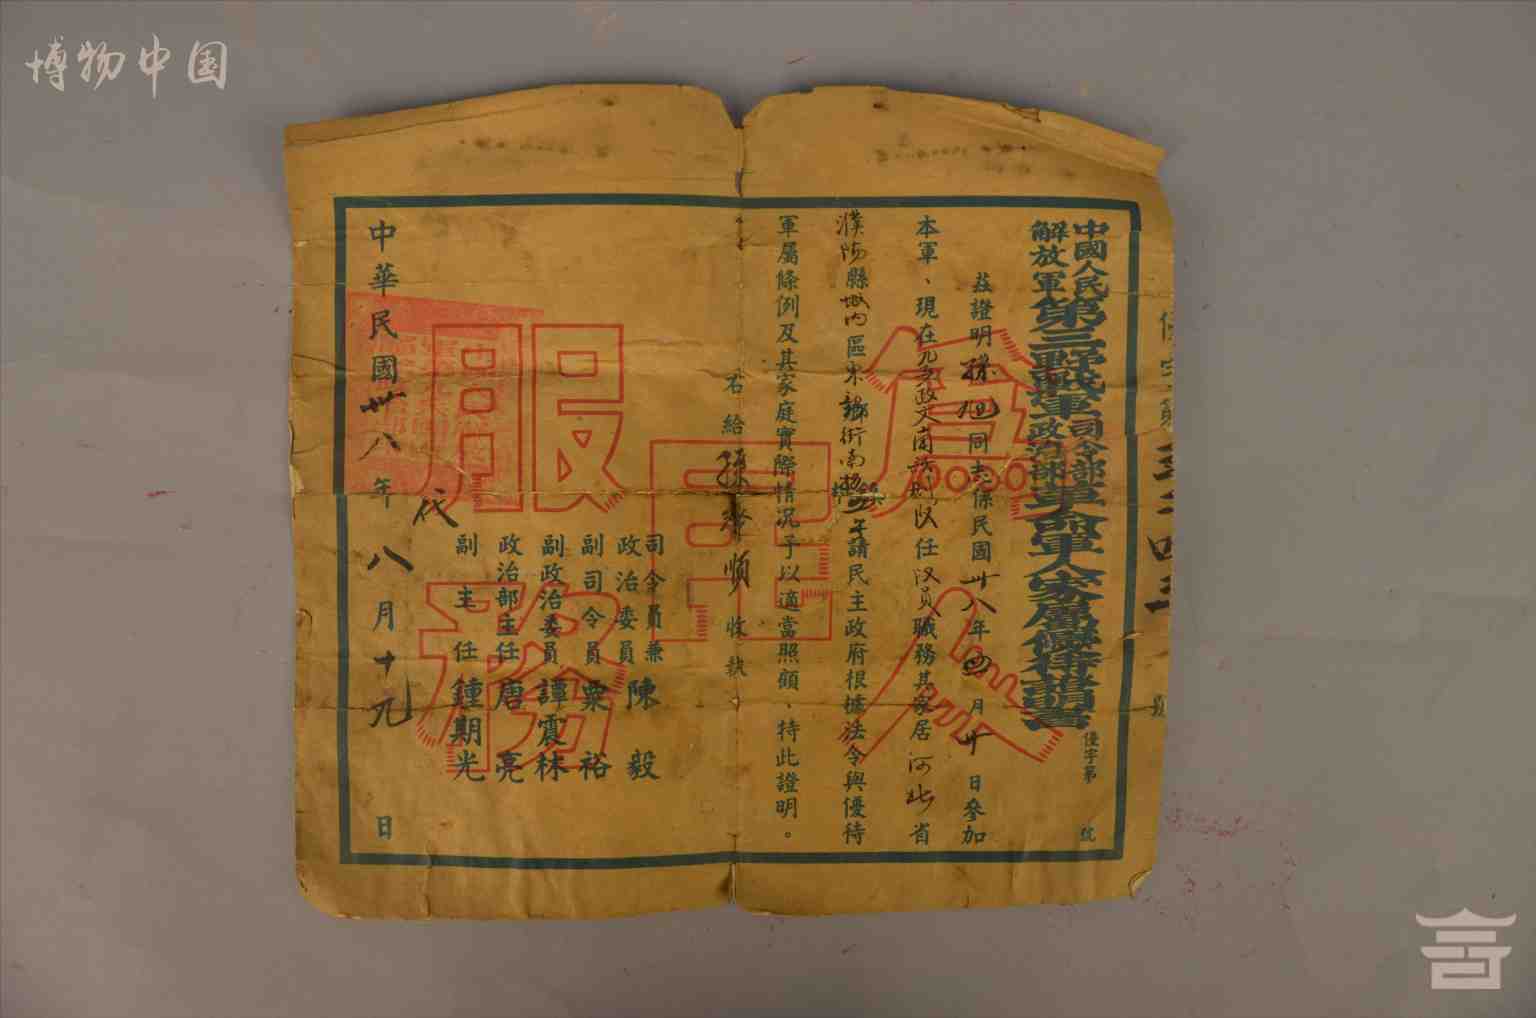 博物中国
中國人民解放軍第三野戰軍司令部政治部革命軍人家屬優待證明書
優字第 號
茲證明孫旭同志係民國卅八年四月廿日參加
本軍、現在 任 員職務其家居河北省
濮陽縣城内區東 鄉街南 請民主政府根據法令與優待
軍屬條例及其家庭實際情况予以適當照顧、特此證明。
右給孫 順收執
司令員兼政治委員 陳毅
副司令員 粟裕
副政治委員 譚震林
政治部主任 唐亮
副主任 鍾期光
代
中華民國卅八年八月十九日
為人民服務